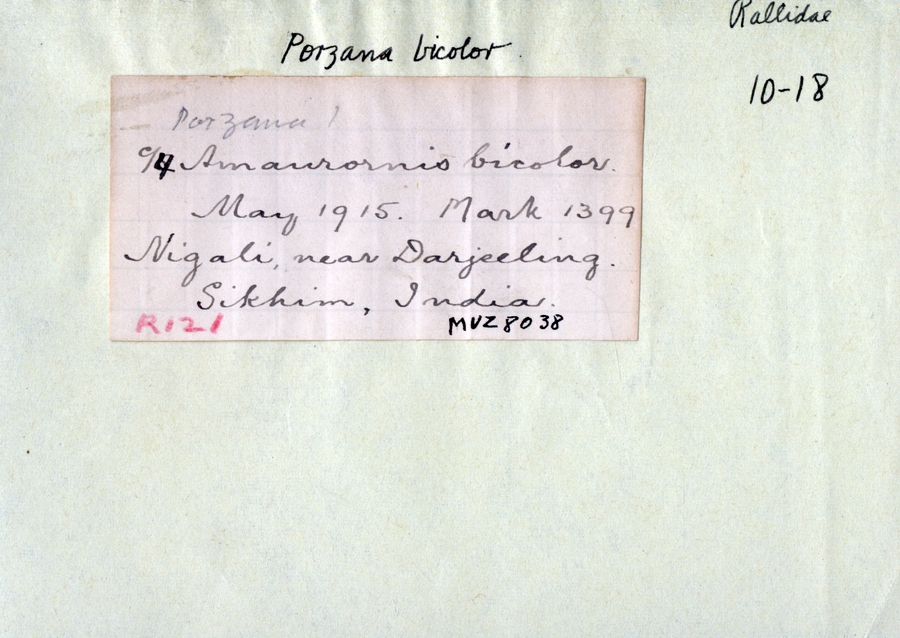 Rallidae
Porzana bicolor.
10-18
Porzana
Amaurornis bicolor.
May 1915. Mark 1399
Nigali, near Darjeeling.
Sikhim, India.
R121
MVZ 8038